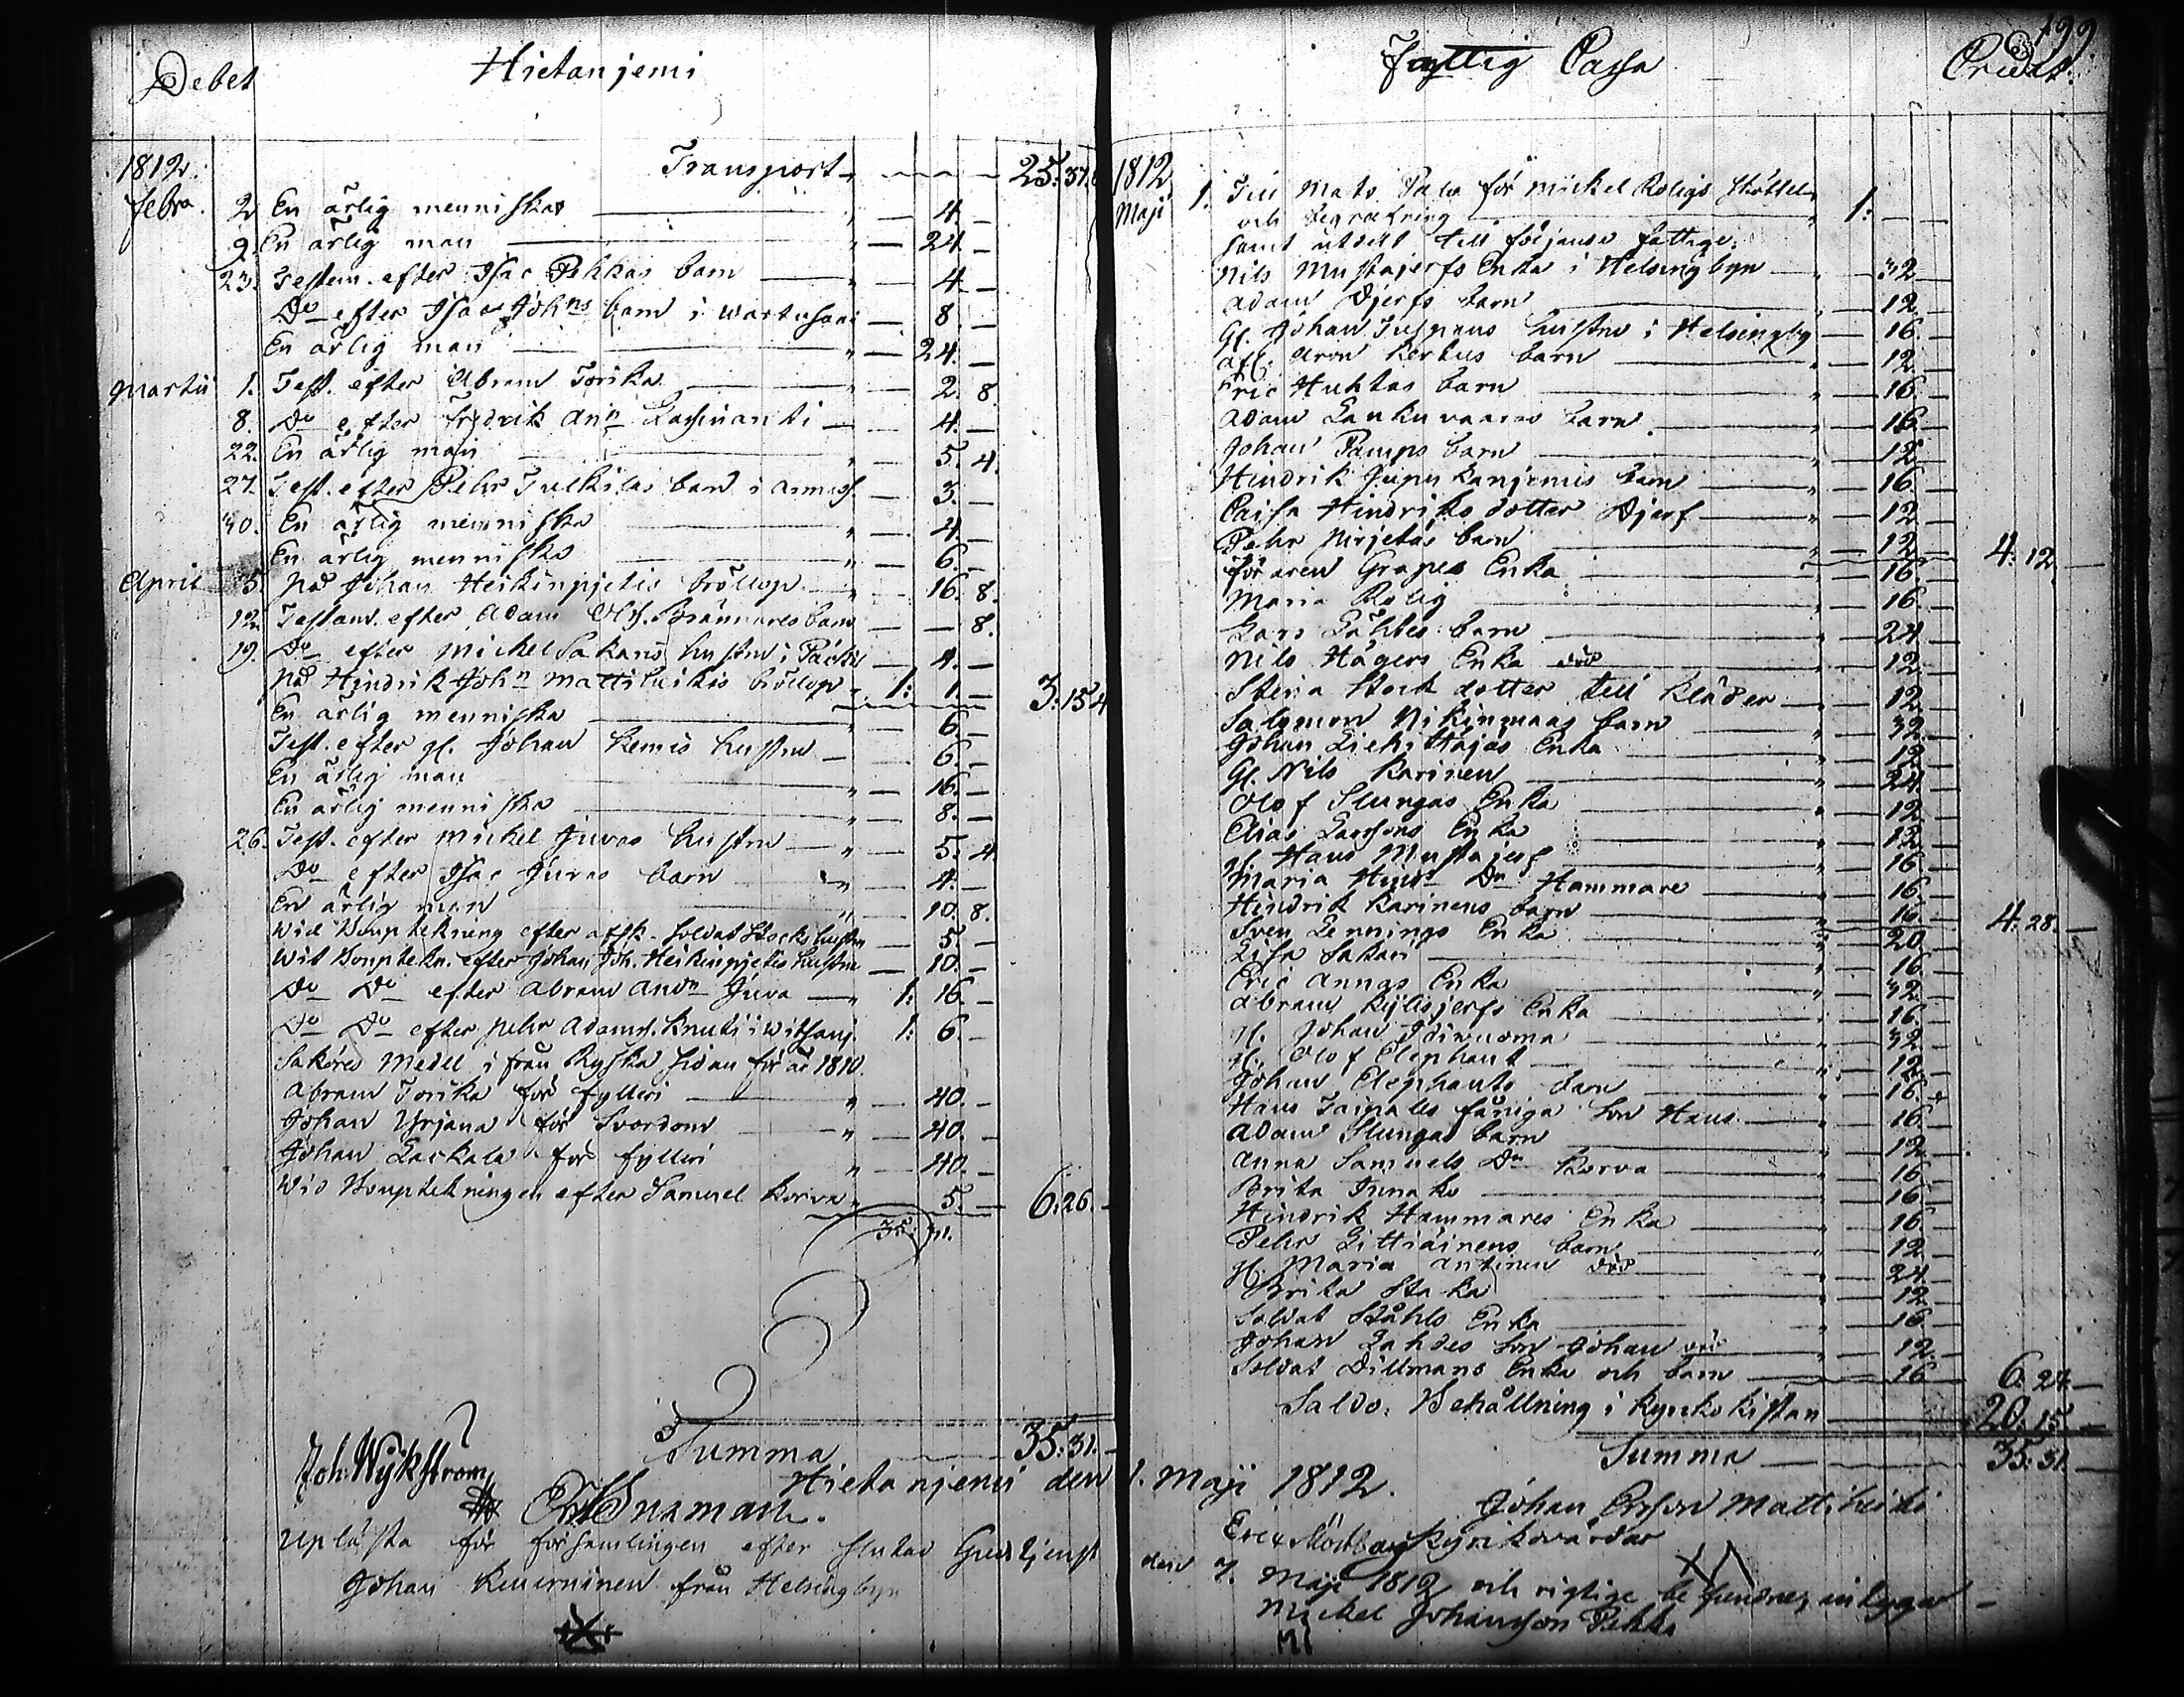 199
Debet Hietanjemi
1812. Transport 25: 31.
Febru. 2. En ärlig menniska 4. —
9. En ärlig man 24. —
23. Testam. efter Isac Pekkas barn 4. —
Do efter Isac Johns barn i 8. —
En ärlig man 24. —
Martii 1. Test. efter Abram Torika 2. 8.
8. Do efter Fredrik Ann 4. —
22. En ärlig man 5. 4.
27. Test. efter Pehr Tulkilas barn i 3. —
30. En ärlig menniska 4. —
En ärlig menniska 6. —
April 5. På Johan Heikinpjetis bröllop 16. 8.
12. Testam. efter Adam Brännares barn — 8.
19. Do efter Michel Sakaris hustru i 4. —
På Hindrik John Mattiheikis bröllop 1: 1. — 3: 15 4
En ärlig menniska 6. —
Test. efter gl. Johan Kemis hustru 6. —
En ärlig man 16. —
En ärlig menniska 8. —
26. Test. efter Michel Juvas hustru 5. 4.
Do efter Isac Juvas barn 4. —
En ärlig man 10. 8.
Wid Boupteckning efter afsk. soldat Stocks hustru 5. —
Wid Bouptekn. efter Johan Joh. Heikinpjetis hustru 10. —
Do Do efter Abram Andn Juva 1: 16. —
Do Do efter Pehr Adams. Knuti i 1: 6. —
Saköres Medel ifrån Ryska sidan för år 1810.
Abram Torika för fylleri 40. —
Johan Yrjana för Svordom 40. —
Johan Lackala för fylleri 40. —
Wid Boupteckningen efter Samuel Korva 5. — 6: 26. —
35: 31.
Summa 35: 31. —
Fattig Cassa Credit.
1812
Maji 1. Till Mats Palo för Mickel Roligs skötsel
och begrafning 1: —
samt utdelt till följande fattige:
Nils Mustajerfs Enka i Helsingbyn 32
Adam Djerfs barn 12. —
Gl. Johan hustru i Helsingby 16. —
Aron Kortus barn 12. —
Eric Huhtas barn 16. —
Adam Lankuvaaras barn 16. —
Johan Pamps barn 12
Hindrik Jupukanjemis barn 16. —
Caisa Hindriks dotter Djerf 12. —
Pehr Nirjetäs barn 12 — 4: 12. —
för Aron Grapes Enka 16. —
Maria Rolig 16. —
Lars Lähtes barn 24. —
Nils Hägers Enka död 12. —
Stina Stock dotter till Kläder 12. —
Salomon Nikinmaas barn 32. —
Johan Liehittäjäs Enka 12 —
Gl. Nils Karinen 24. —
Olof Slungas Enka 12. —
Elias Larssons Enka 12. —
gl. Hans Mustajerf 16. —
Maria Hindr Dr Hammare 16. —
Hindrik Karinens barn 16. — 4: 28. —
Sven Lennings Enka 20. —
Lisa Sakari 16. —
Eric Annas Enka 32. —
Abram Kylisjerfs Enka 16. —
gl. Johan 32. —
gl. Olof Elephant 12. —
Johan Elephants barn 16. —
Hans Taipales fåniga Son Hans 16. —
Adam Slungas barn 12. —
Anna Samuels Dr Korva 16. —
Brita Junako 16. —
Hindrik Hammares Enka 16. —
Pehr Littiäinens barn 12. —
gl. Maria Antinen död 24. —
Brita Staka 12 —
Soldat Ståhls Enka 16. —
Johan Lahdes Son Johan död 12. —
Soldat Dillmans Enka och barn 16 6: 24. —
Saldo. Behållning i Kyrkokistan 20: 15. —
Summa 35: 31. —
Hietanjemi den 1. Maji 1812.
Joh: Wijkström
Snsman.
Johan Ersson Mattiheiki
Kyrkovärdar
Uplästa för församlingen efter slutad Gudstjenst den 7. Maji 1812 och rigtige befundne, intyga
Johan Kuiurninen från Helsingbyn
Mickel Johansson Pekka